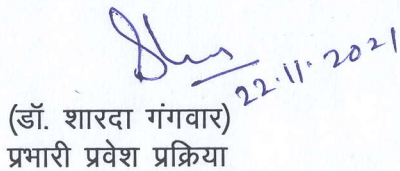 22.11.2021
(डॉ. शारदा गंगवार)
प्रभारी प्रवेश प्रक्रिया